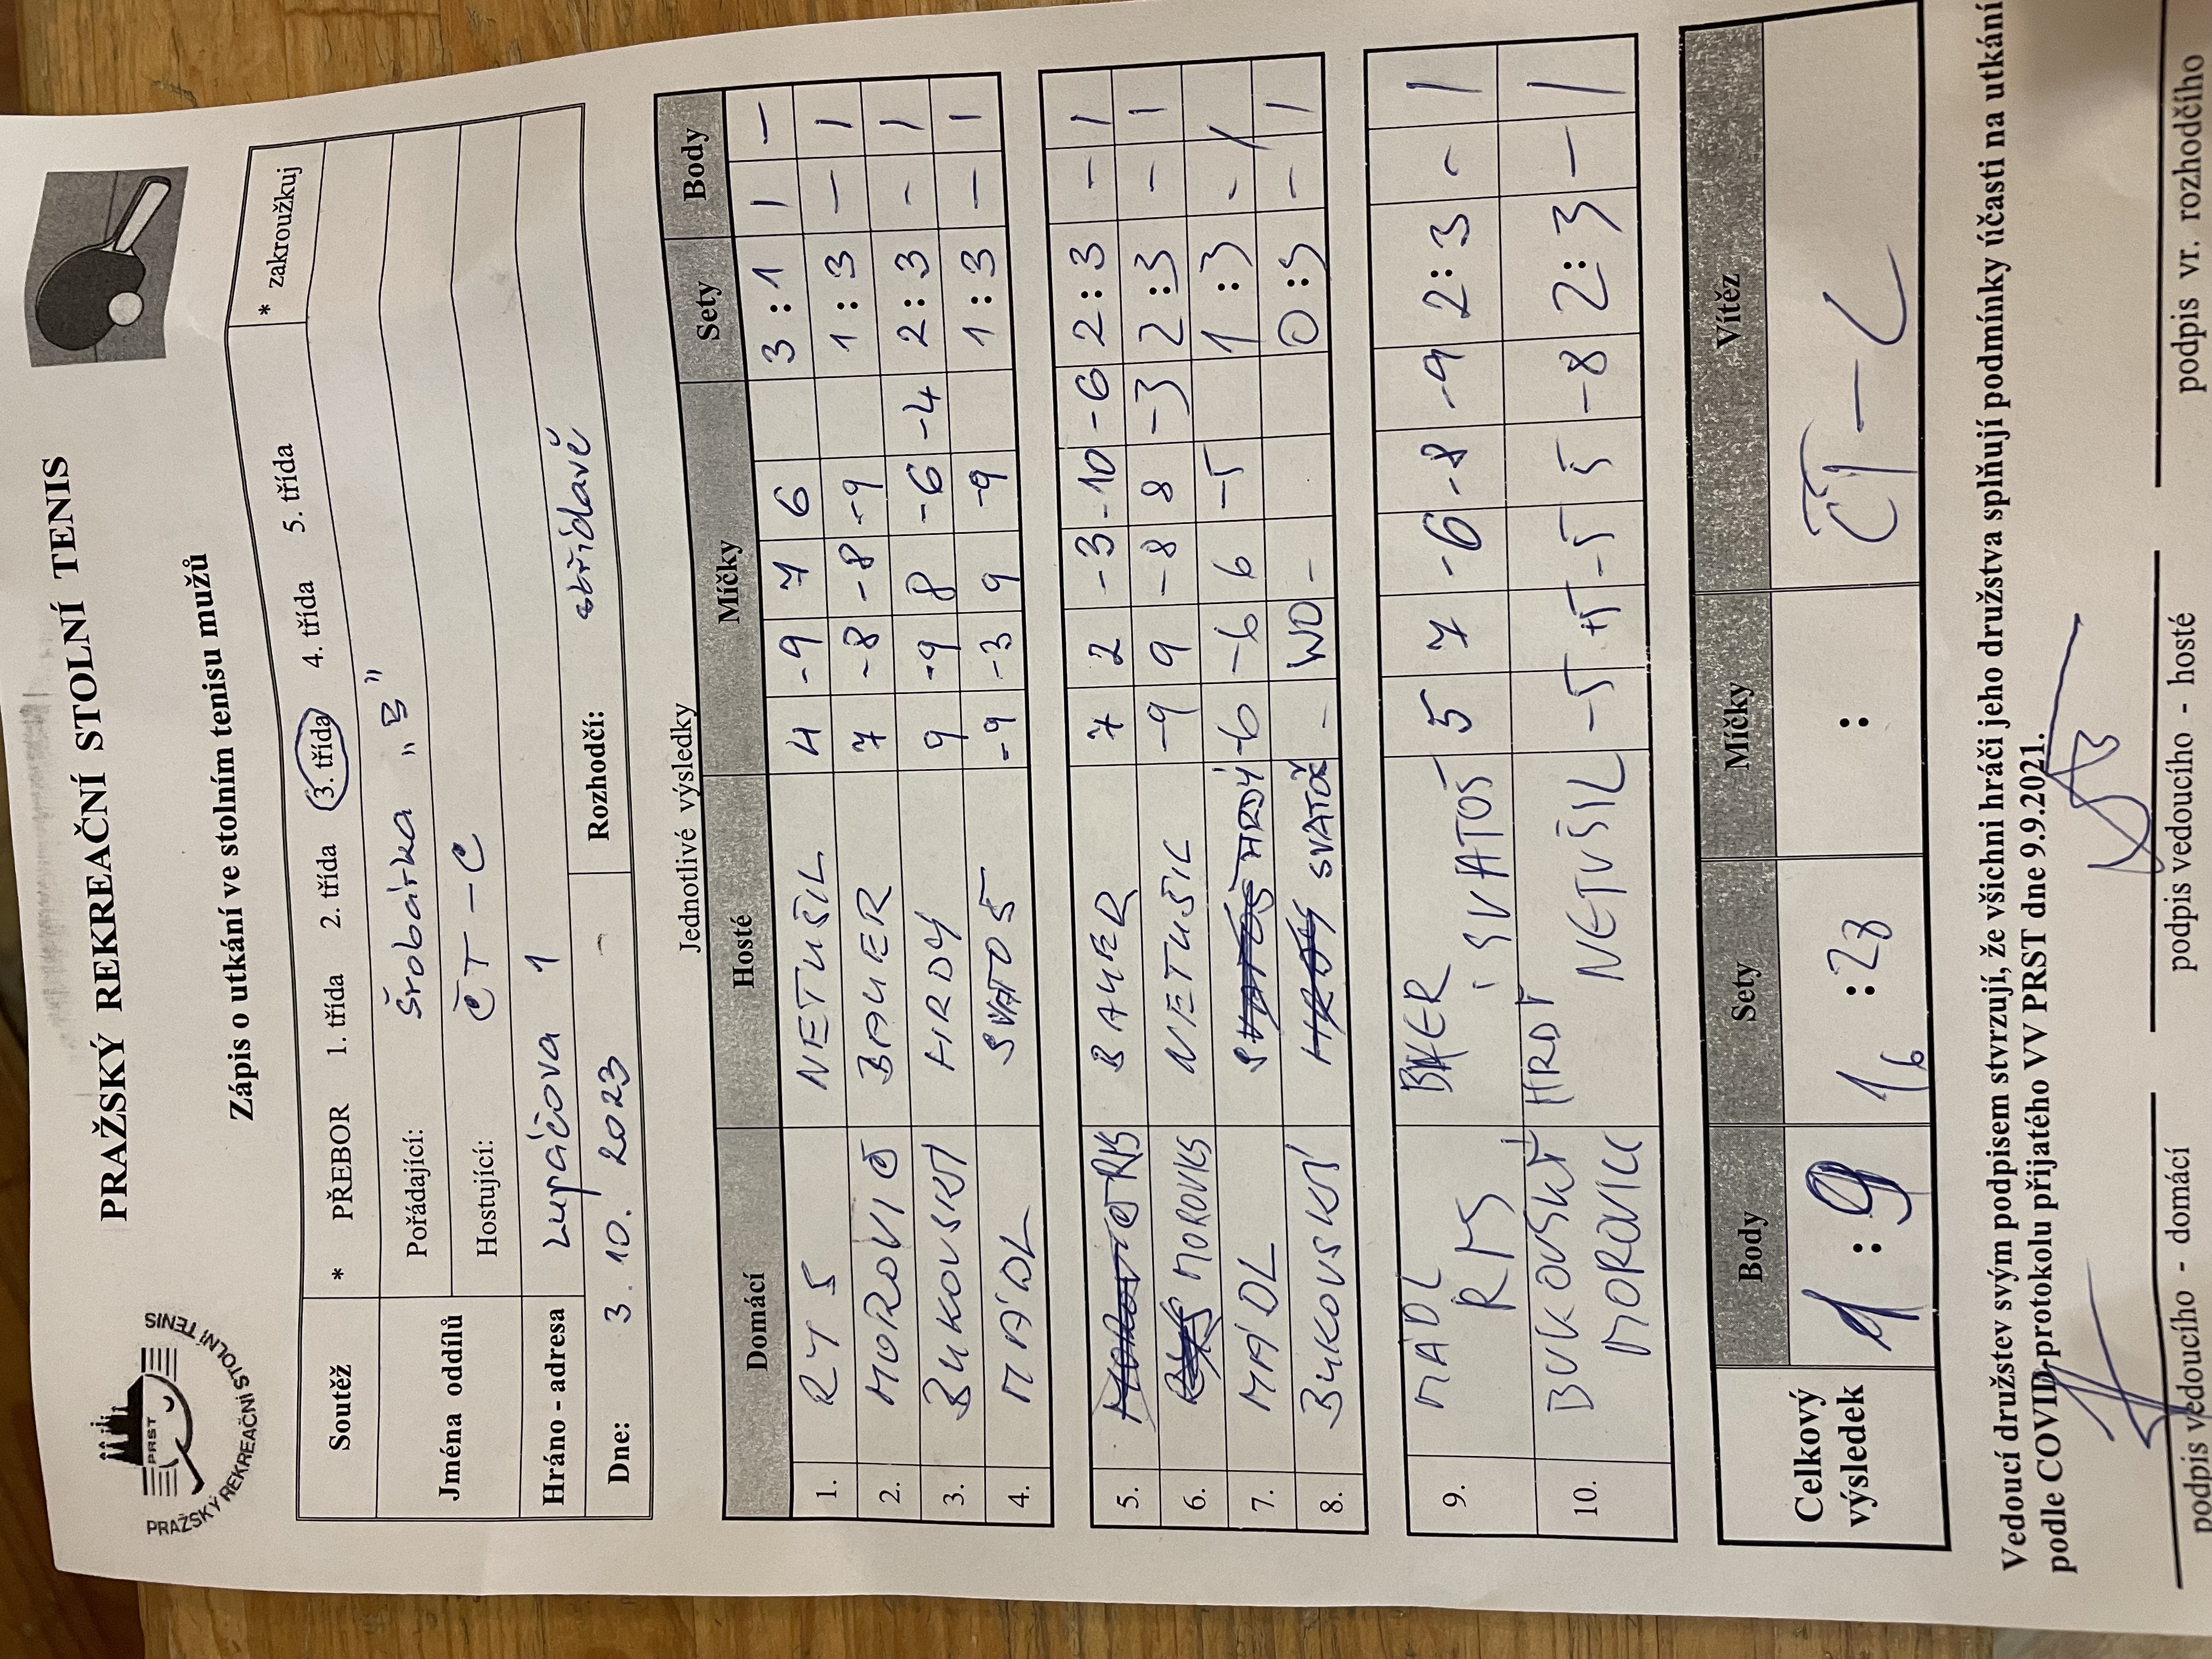 PRAŽSKÝ REKREAČNÍ STOLNÍ TENIS
PRST
PRAŽSKÝ REKREAČNÍ STOLNÍ TENIS
Zápis o utkání ve stolním tenisu mužů
Soutěž * PŘEBOR 1. třída 2. třída 3. třída 4. třída 5. třída * zakroužkuj
Jména oddílů Pořádající: Šrobárka „B"
Hostující: ČT - C
Hráno - adresa Lupáčova 1
Dne: 3. 10. 2023 - Rozhodčí: střídavě
Jednotlivé výsledky
Domácí Hosté Míčky Sety Body
1. RYS NETUŠIL 4 -9 7 6 3 : 1 1 —
2. MOROVIC BAUER 7 -8 -8 -9 1 : 3 — 1
3. BUKOVSKÝ HRDÝ 9 -9 8 -6 -4 2 : 3 - 1
4. MÁDL SVATOŠ -9 -3 9 -9 1 : 3 — 1
5. RYS BAUER 7 2 -3 -10 -6 2 : 3 — 1
6. MOROVICS NETUŠIL -9 9 -8 8 -3 2 : 3 — 1
7. MÁDL HRDÝ -6 -6 6 -5 1 : 3 - 1
8. BUKOVSKÝ SVATOŠ - WO - 0 : 3 — 1
9. MÁDL BAUER 5 7 -6 -8 -9 2 : 3 - 1
RYS SVATOŠ
10. BUKOVSKÝ HRDÝ -5 +5 -5 5 -8 2 : 3 — 1
MOROVIC NETUŠIL
Celkový výsledek Body Sety Míčky Vítěz
1 : 9 16 : 28 : ČT - C
Vedoucí družstev svým podpisem stvrzují, že všichni hráči jeho družstva splňují podmínky účasti na utkání
podle COVID-protokolu přijatého VV PRST dne 9.9.2021.
podpis vedoucího - domácí podpis vedoucího - hosté podpis vr. rozhodčího